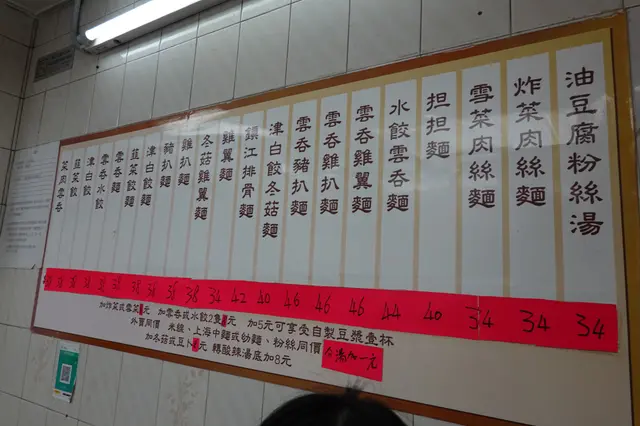 油豆腐粉絲湯
炸菜肉絲麵
雪菜肉絲麵
担担麵
水餃雲吞麵
雲吞雞翼麵
雲吞雞扒麵
雲吞豬扒麵
津白餃冬菇麵
鎮江排骨麵
雞翼麵
冬菇雞翼麵
雞扒麵
豬扒麵
津白餃麵
韮菜餃麵
雲吞麵
雲吞水餃
津白餃
韮菜餃
菜肉雲吞
38 34 42 40 46 46 46 44 40 34 34 34
加炸菜或雪菜元 加雲吞或水餃2隻元 加5元可享受自製豆漿壹杯
外賣同價 米線、上海中麵或幼麵、粉絲同價
加冬菇或豆卜元 轉酸辣湯底加8元